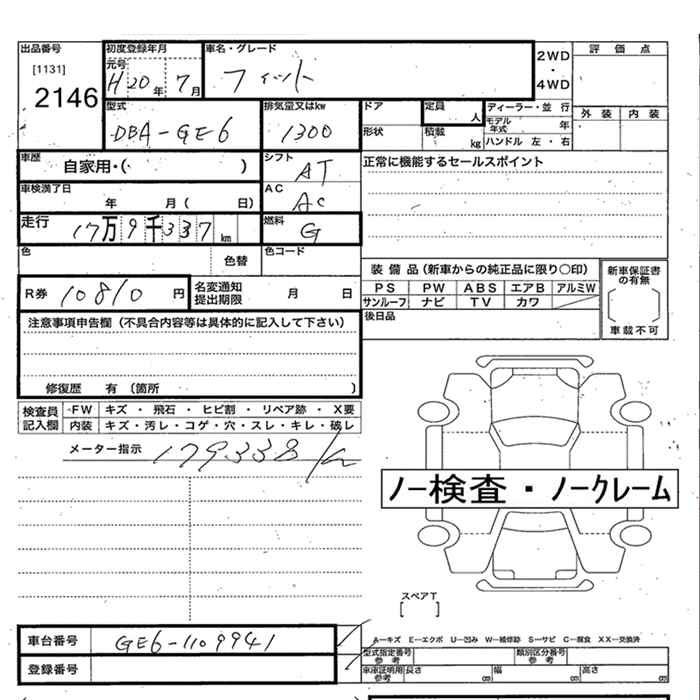 出品番号 初度登録年月 車名・グレード 2WD ・ 4WD 評価点
[1131] 元号 H20年 7月 フィット 外装 内装
2146
型式 DBA-GE6 排気量又はkw 1300 ドア 定員 人 ディーラー・並行
形状 積載 kg モデル年式 年
ハンドル 左・右
車歴 自家用・( ) シフト AT 正常に機能するセールスポイント
車検満了日 年 月( 日) AC AC
走行 17万9千337km 燃料 G
色 色替 色コード
装備品(新車からの純正品に限り○印) 新車保証書の有無
R券 10810円 名変通知提出期限 月 日 PS PW ABS エアB アルミW
サンルーフ ナビ TV カワ 車載不可
注意事項申告欄(不具合内容等は具体的に記入して下さい) 後日品
修復歴 有(箇所 )
検査員記入欄 FW キズ・飛石・ヒビ割・リペア跡・X要
内装 キズ・汚レ・コゲ・穴・スレ・キレ・破レ
メーター指示 179338km
ノー検査・ノークレーム
スペアT
[ ]
車台番号 GE6-1109941 A―キズ E―エクボ U―凹み W―補修跡 S―サビ C―腐食 XX―交換済
型式指定番号参考 類別区分番号参考
登録番号 車庫証明用参考 長さ cm 幅 cm 高さ cm